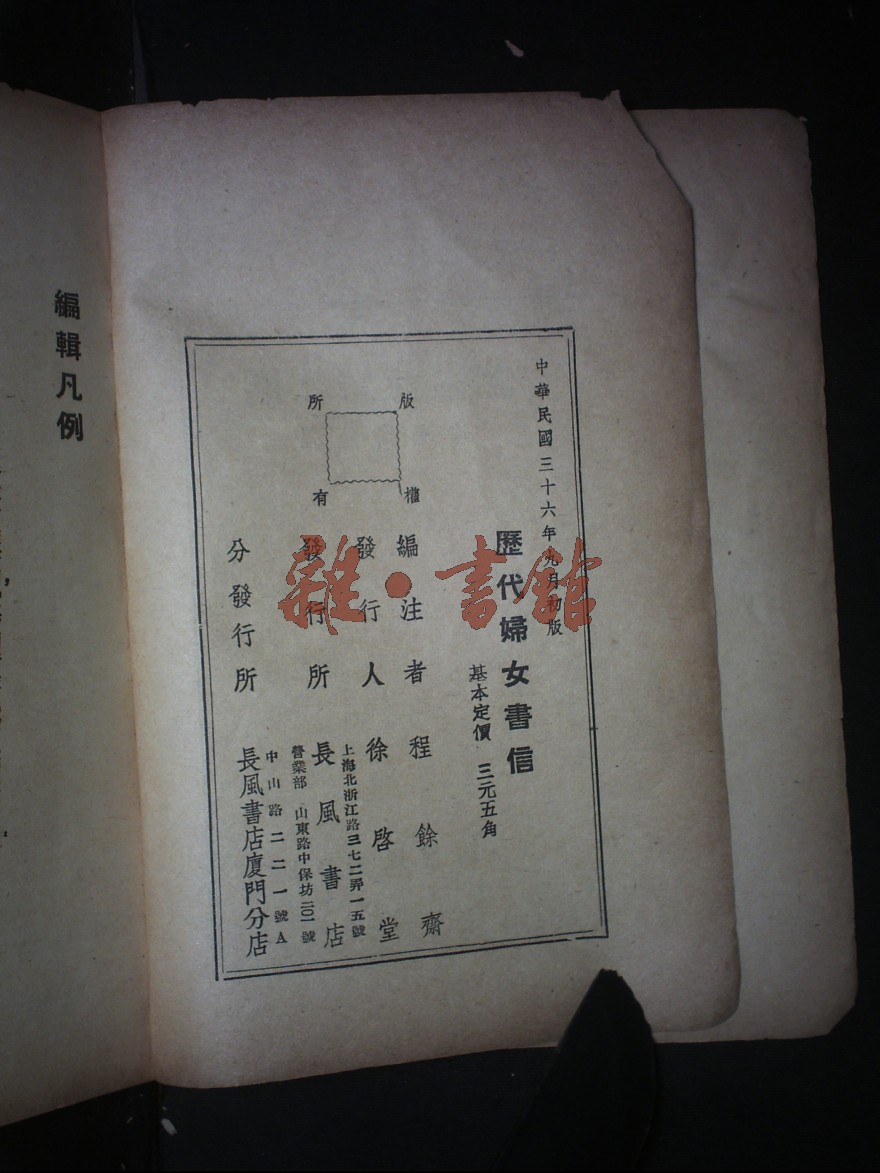 中華民國三十六年九月初版
歷代婦女書信
基本定價 三元五角
版權所有
編注者 程餘齋
發行人 徐啓堂
上海北浙江路三七二弄一五號
發行所 長風書店
營業部 山東路中保坊二〇一號
中山路二二一號A
分發行所 長風書店廈門分店
編輯凡例
雜·書館